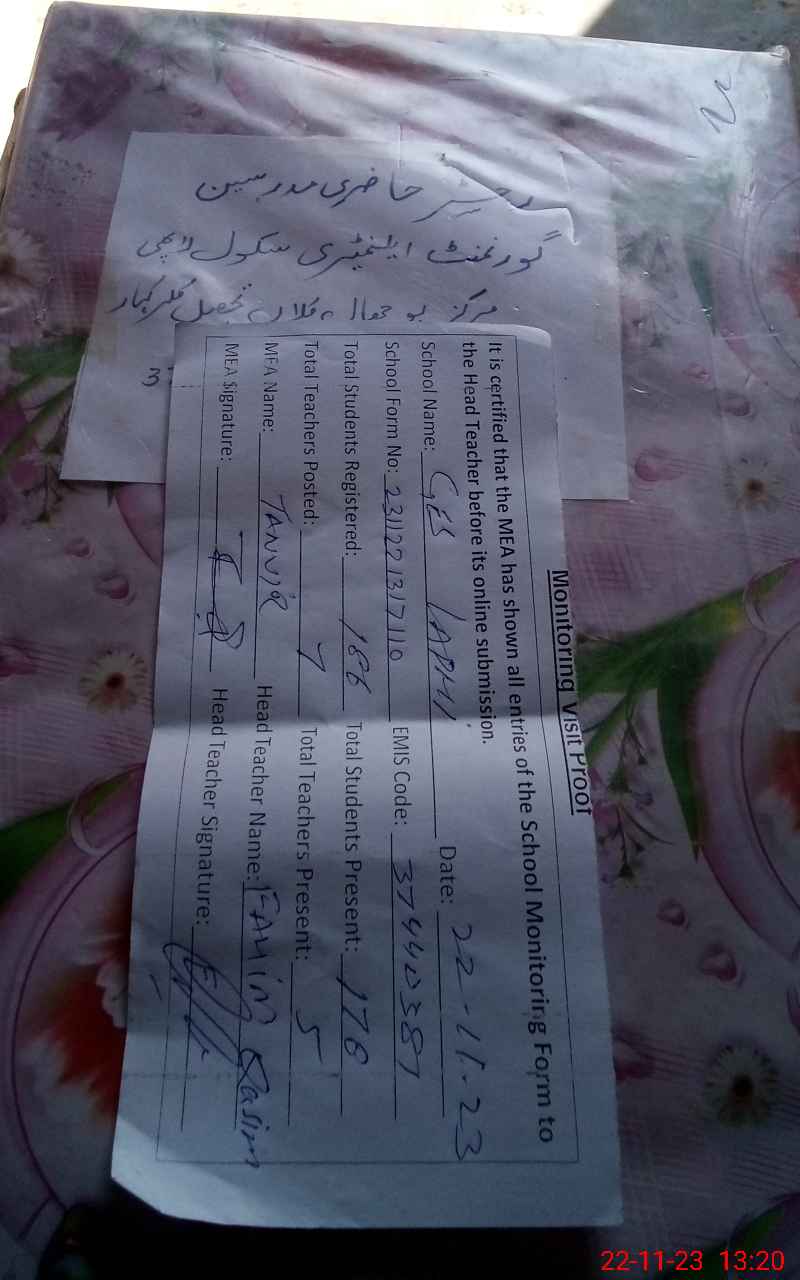 رجسٹر حاضری مدرسین
گورنمنٹ ایلیمنٹری سکول لاپھی
مرکز بوچھال کلاں تحصیل کلرکہار
Monitoring Visit Proof
It is certified that the MEA has shown all entries of the School Monitoring Form to
the Head Teacher before its online submission.
School Name: GES LAPHI Date: 22-11-23
School Form No: 2311221317110 EMIS Code: 37440387
Total Students Registered: 186 Total Students Present: 176
Total Teachers Posted: 7 Total Teachers Present: 5
MEA Name: TANVIR Head Teacher Name: FAHIM Qasim
MEA Signature: Head Teacher Signature:
22-11-23 13:20